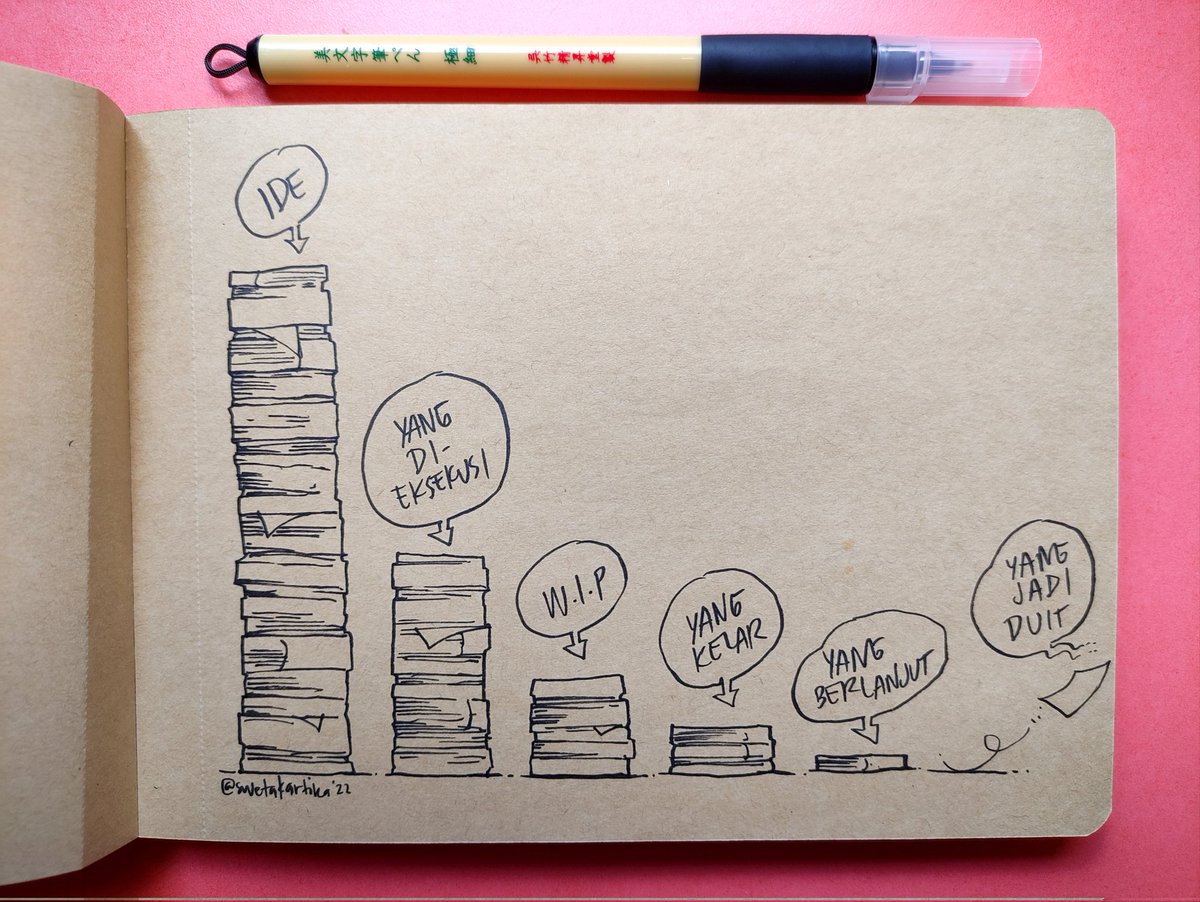 美文字筆ぺん 極細 呉竹精昇堂製
IDE
YANG
DI-
EKSEKUSI
W.I.P
YANG
KELAR
YANG
BERLANJUT
YANG
JADI
DUIT
@swetakartika'22